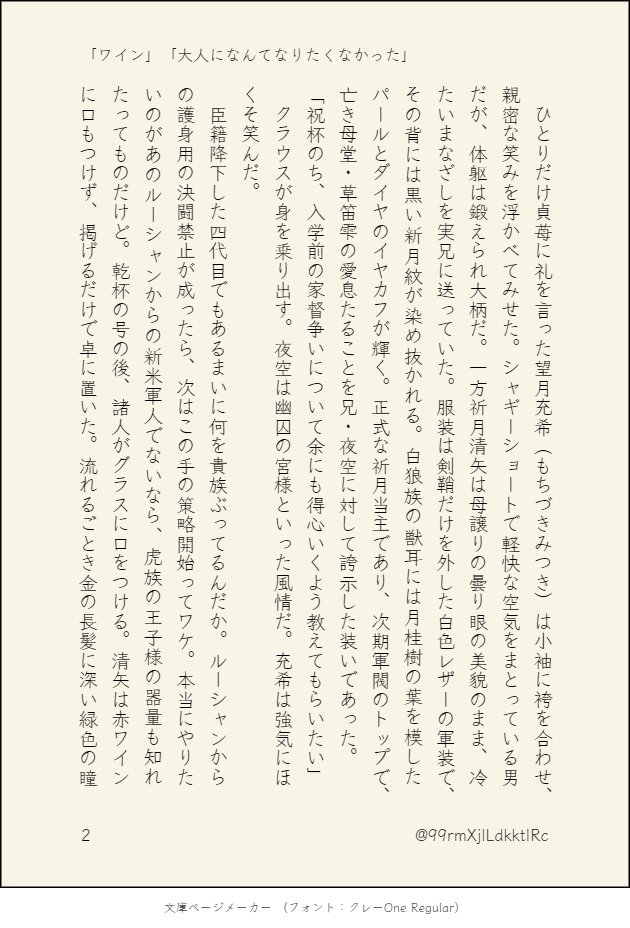 「ワイン」「大人になんてなりたくなかった」
　ひとりだけ貞苺に礼を言った望月充希（もちづきみつき）は小袖に袴を合わせ、
親密な笑みを浮かべてみせた。シャギーショートで軽快な空気をまとっている男
だが、体躯は鍛えられ大柄だ。一方祈月清矢は母譲りの曇り眼の美貌のまま、冷
たいまなざしを実兄に送っていた。服装は剣鞘だけを外した白色レザーの軍装で、
その背には黒い新月紋が染め抜かれる。白狼族の獣耳には月桂樹の葉を模した
パールとダイヤのイヤカフが輝く。正式な祈月当主であり、次期軍閥のトップで、
亡き母堂・草笛雫の愛息たることを兄・夜空に対して誇示した装いであった。
「祝杯のち、入学前の家督争いについて余にも得心いくよう教えてもらいたい」
　クラウスが身を乗り出す。夜空は幽囚の宮様といった風情だ。充希は強気にほ
くそ笑んだ。
　臣籍降下した四代目でもあるまいに何を貴族ぶってるんだか。ルーシャンから
の護身用の決闘禁止が成ったら、次はこの手の策略開始ってワケ。本当にやりた
いのがあのルーシャンからの新米軍人でないなら、虎族の王子様の器量も知れ
たってものだけど。乾杯の号の後、諸人がグラスに口をつける。清矢は赤ワイン
に口もつけず、掲げるだけで卓に置いた。流れるごとき金の長髪に深い緑色の瞳
2
@99rmXjlLdkktlRc
文庫ページメーカー （フォント：クレーOne Regular）